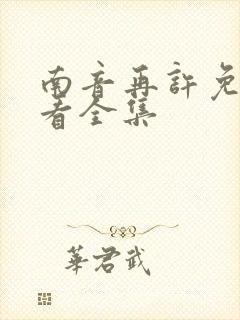 南音再许免
看全集
華君武